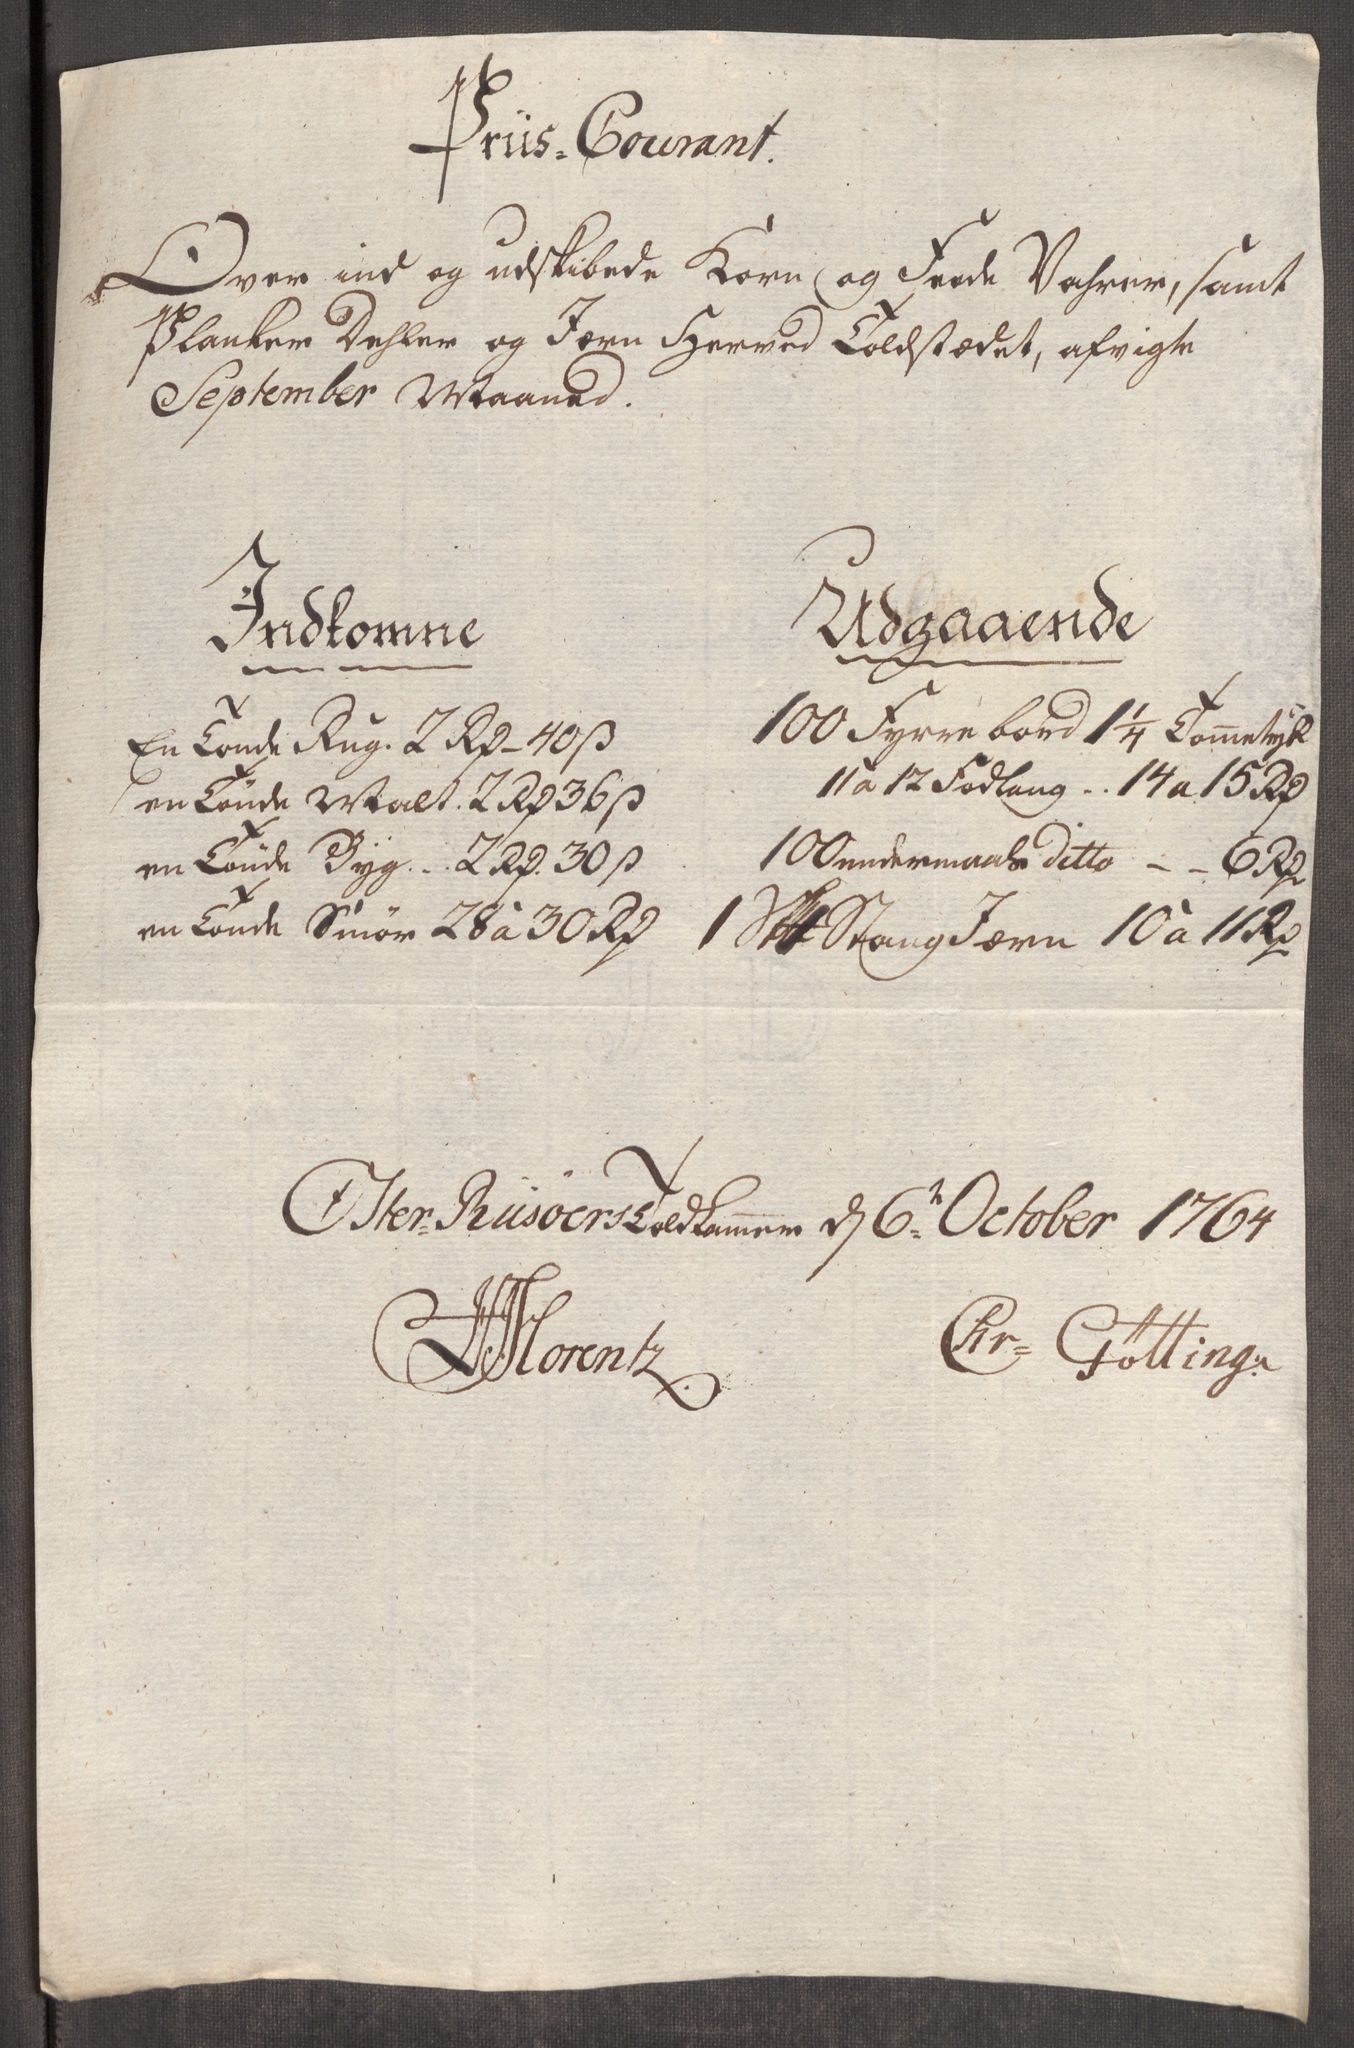 Priis-Courant.
Over ind og udskibede Korn og Feede Vahrer, samt
Planker Dehler og Jern Herved Toldstædet, afvigte
September Maaned.
Indkomne
En Tønde Rug. 2 Rd - 40 ß
en Tønde Malt. 2 Rd 36 ß
en Tønde Byg... 2 Rd. 30 ß
en Tønde Smør 28 à 30 Rd
Udgaaende
100 Fyrre bord 1 1/4 Tommetyk
11 a 12 Fod lang .. 14 a 15 Rd
100 undermaals Ditto - - 6 Rd
1 Stang Jern 10 à 11 Rd
Øster-Riisøers Toldkammer d 6. October 1764
Lorentz
Chr= Gøtting.